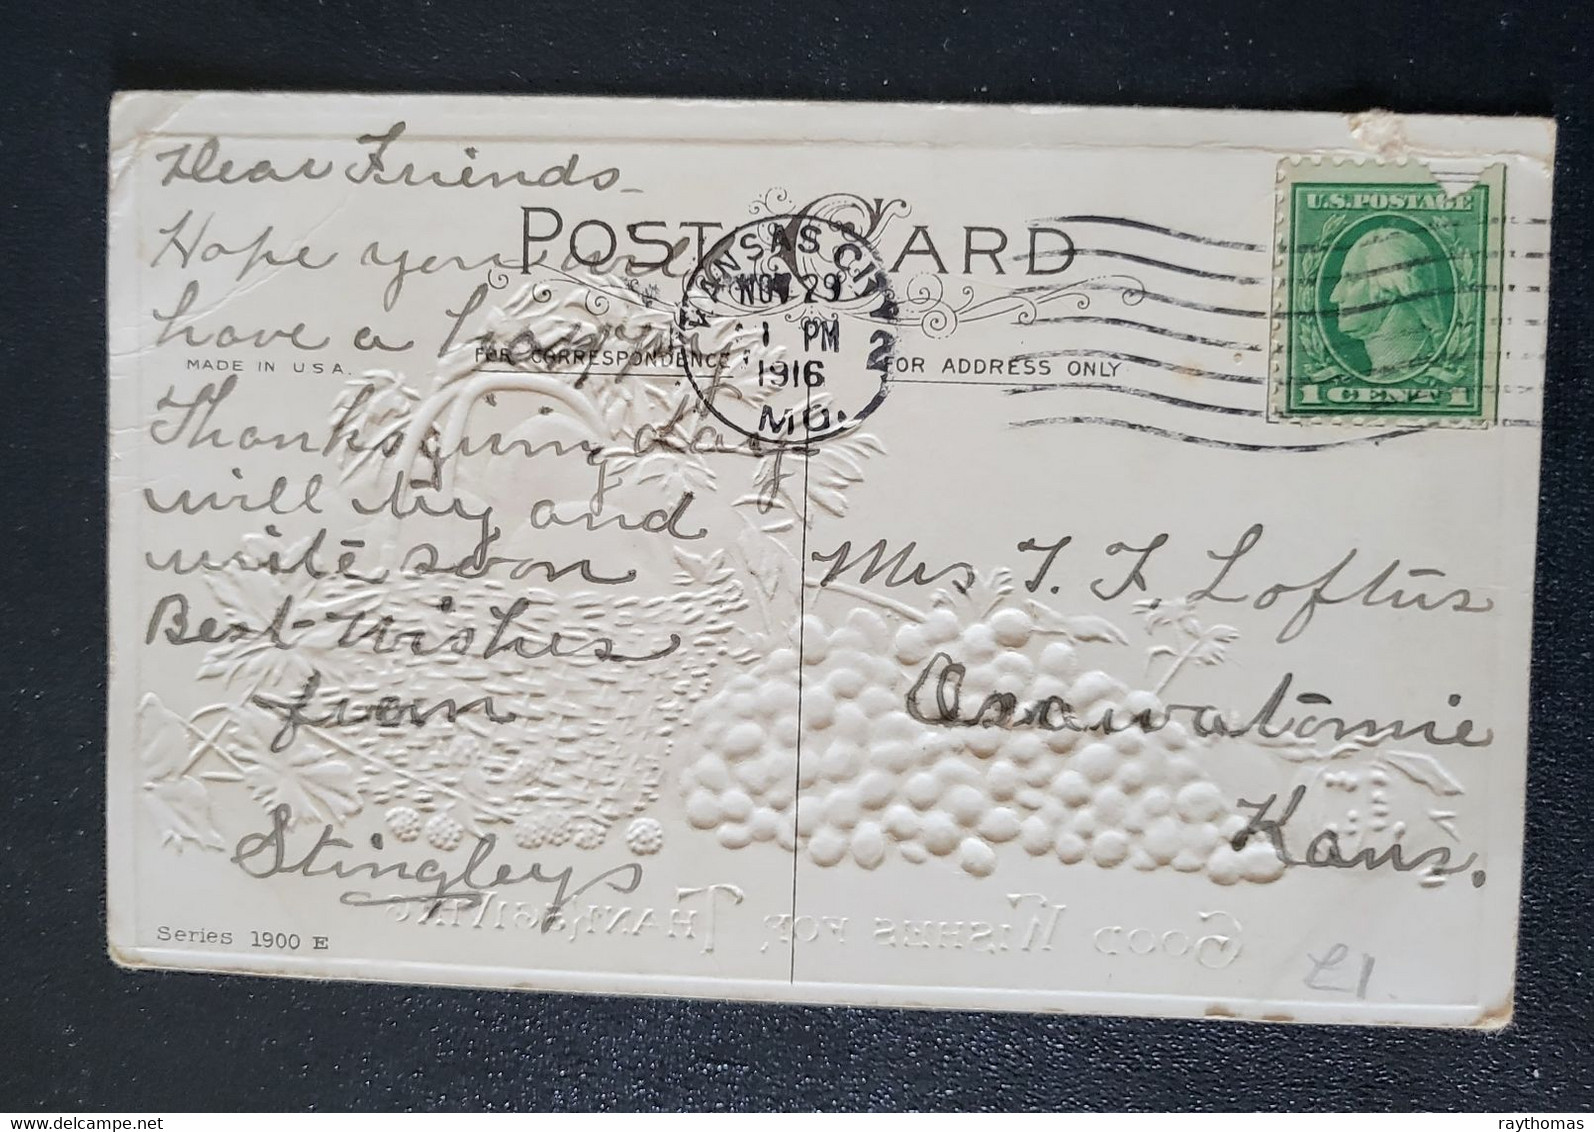 Dear Friends -
Hope you all
have a happy
Thanksgiving day
will try and
write soon
Best Wishes
from
Stingleys
POST CARD
MADE IN U S A.
FOR CORRESPONDENCE
FOR ADDRESS ONLY
KANSAS CITY 2
NOV 29
1 PM
1916
MO.
U.S. POSTAGE
1 CENT 1
Mrs T. F. Loftus
Osawatomie
Kans.
Series 1900 E
GOOD WISHES FOR THANKSGIVING
£1.
raythomas